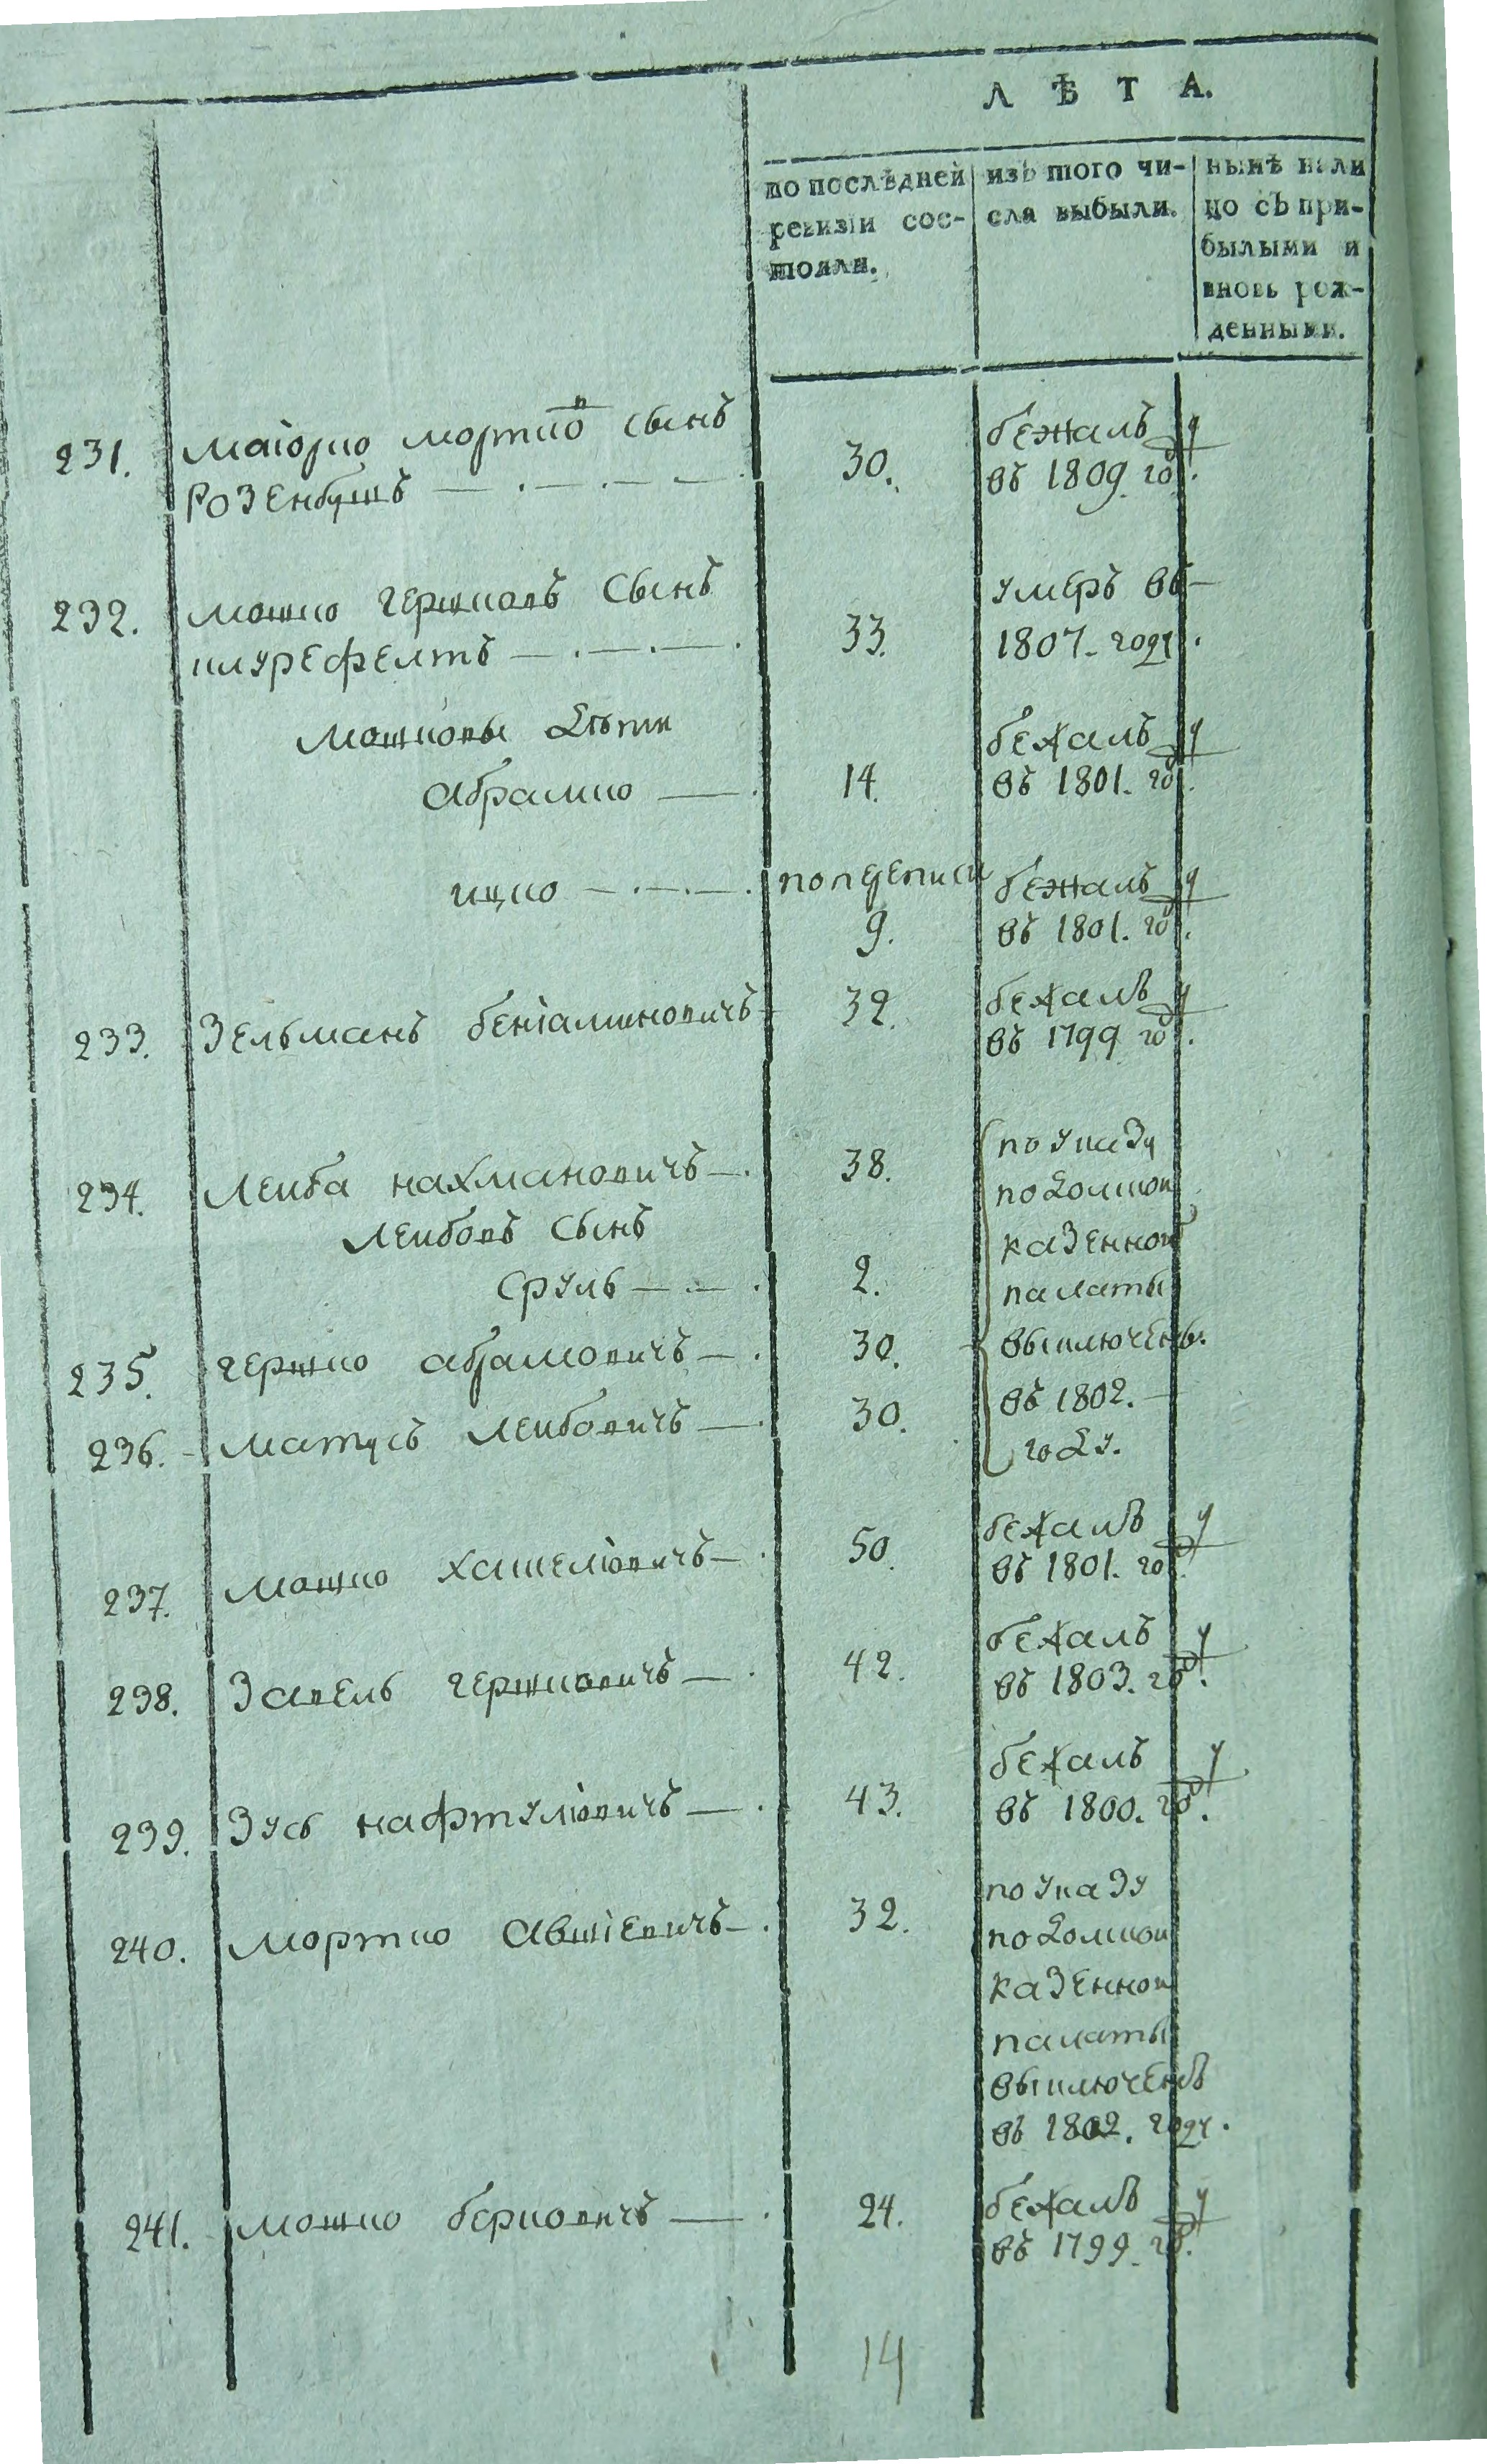 ЛѢТА.
по послѣдней
ревизіи сос-
тояли.
изъ того чи-
сла выбыли.
нынѣ нали
цо съ при-
былыми и
вновь рож-
денными.
231. маіорко морткѡв сынъ
розенбушъ — . — . — — .
30.
бежалъ
въ 1809. году.
232. мошко гершковъ сынъ
шлурефелтъ — . — . — .
33.
умеръ въ —
1807. году.
мошковы дѣти
абрамко — .
14.
бежалъ
въ 1801. году.
ицко — . — . — .
попереписи
9.
бежалъ
въ 1801. году.
233. зельманъ беніаминовичъ
32.
бежалъ
въ 1799 году.
234. Леиба нахмановичъ — .
38.
по указу
подолскои
казеннои
палаты
выключены.
въ 1802. —
году.
леибовъ сынъ
сруль — — .
2.
235. гершко абрамовичъ — .
30.
236. матусъ леибовичъ — .
30.
237. мошко хашкеліовичъ — .
50.
бежалъ
въ 1801. году.
238. завель гершковичъ — .
42.
бежалъ
въ 1803. году.
239. зусь нафтуліовичъ — .
43.
бежалъ
въ 1800. году.
240. мортко авшіевичъ — .
32.
по указу
подолскои
казеннои
палаты
выключенъ
въ 1802. году.
241. мошко берковичъ — .
24.
бежалъ
въ 1799. году.
14